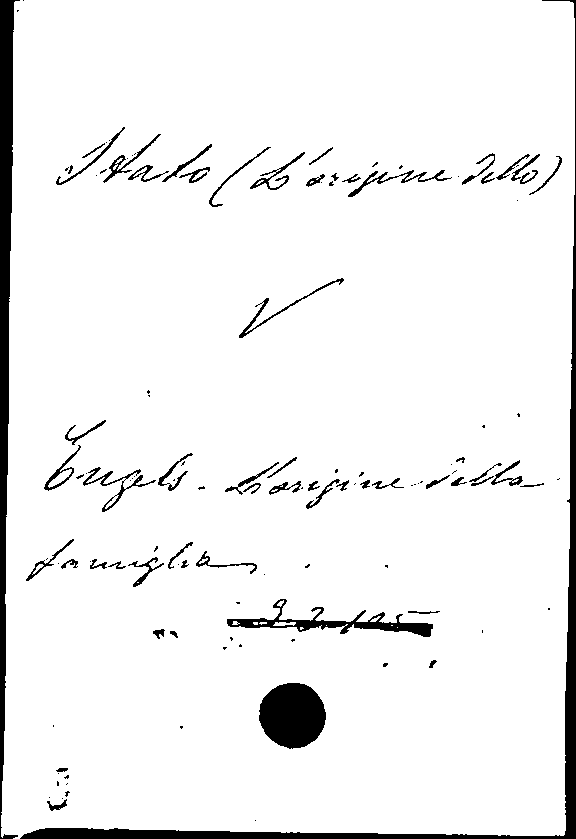 Stato (L'origine dello)
V
Engels - L'origine della
famiglia